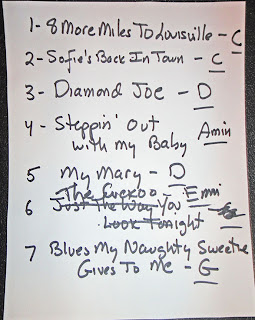 1- 8 More Miles To Louisville - C
2- Sofie's Back In Town - C
3- Diamond Joe - D
4- Steppin' Out
with my Baby Amin
5 My Mary - D
The Cuckoo - Emin
6 Just The Way You
Look Tonight
7 Blues My Naughty Sweetie
Gives To Me - G